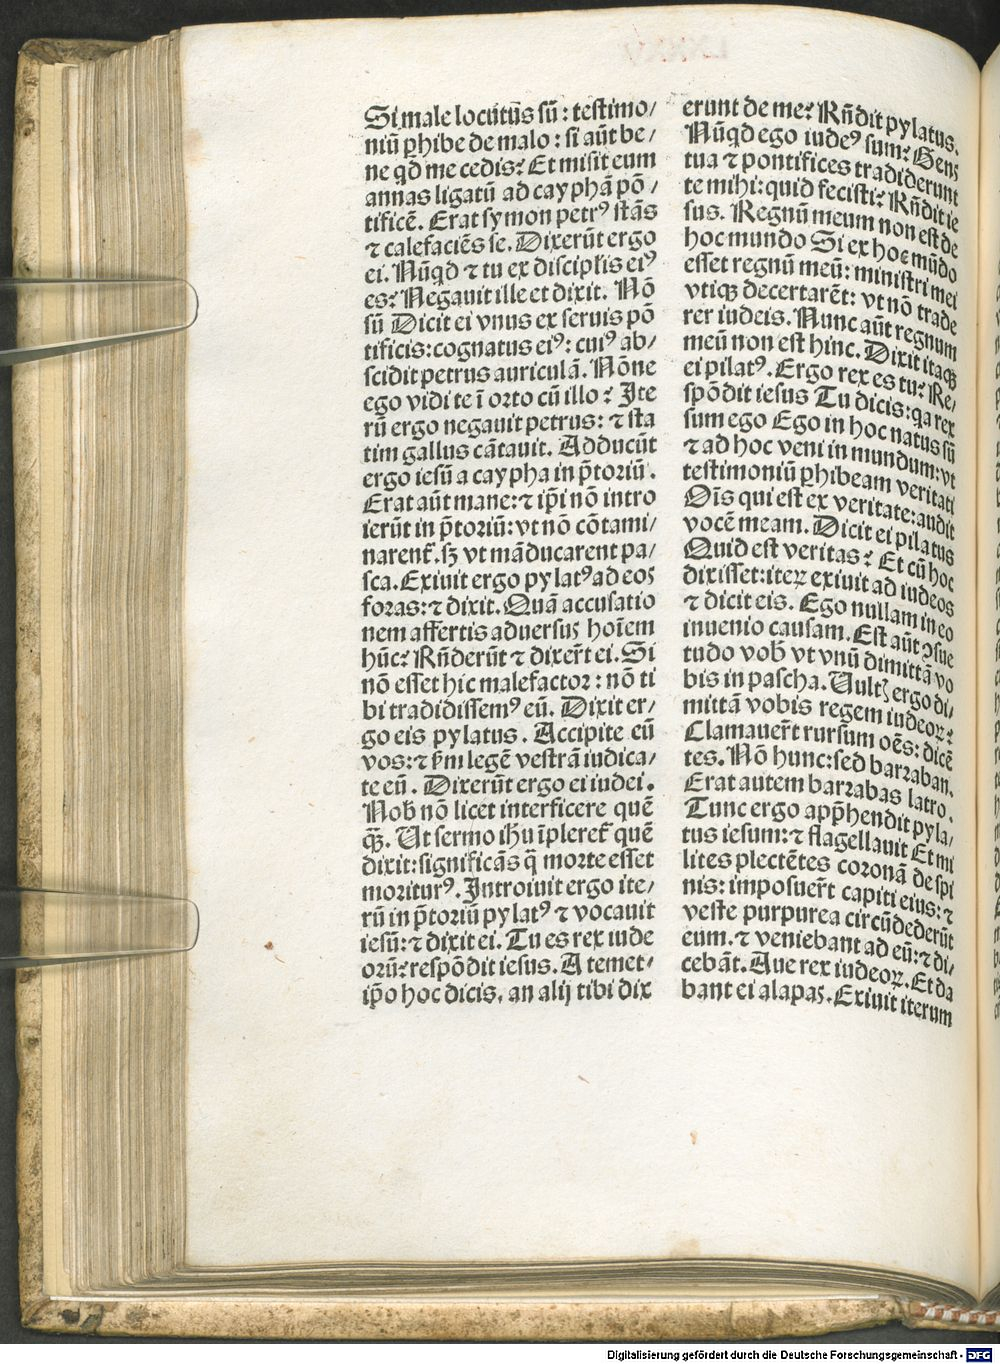 Si male locutus sū : testimo/
niū ꝑhibe de malo : si aūt be/
ne qd me cedis? Et misit eum
annas ligatū ad cayphā pō/
tificē. Erat symon petrꝰ stās
⁊ calefaciēs se. Dixerūt ergo
ei. Nūqd ⁊ tu ex discipłis eiꝰ
es? Negauit ille et dixit. Nō
sū Dicit ei vnus ex seruis pō
tificis: cognatus eiꝰ: cuiꝰ ab/
scidit petrus auriculā. Nōne
ego vidi te ī orto cū illo? Ite
rū ergo negauit petrus: ⁊ sta
tim gallus cātauit. Adducūt
ergo iesū a caypha in p̄toriū.
Erat aūt mane: ⁊ ip̄i nō intro
ierūt in p̄toriū: vt nō cōtami/
narent̄. sꝫ vt māducarent pa/
sca. Exiuit ergo pylatꝰ ad eos
foras: ⁊ dixit. Quā accusatio
nem affertis aduersus hoīem
hūc? Rn̄derūt ⁊ dixer̄t ei. Si
nō esset hic malefactor: nō ti
bi tradidissemꝰ eū. Dixit er/
go eis pylatus. Accipite eū
vos: ⁊ ẜm legē vestrā iudica/
te eū. Dixerūt ergo ei iudei.
Nob̄ nō licet interficere quē
q̄ꝫ. Ut sermo ih̄u īpleret̄ quē
dixit: significās q̄ morte esset
moriturꝰ. Introiuit ergo ite/
rū in p̄toriū pylatꝰ ⁊ vocauit
iesū: ⁊ dixit ei. Tu es rex iude
orū? respōdit iesus. A temet/
ip̄o hoc dicis, an alij tibi dix
erunt de me? Rn̄dit pylatus.
Nūqd ego iudeꝰ sum? Gens
tua ⁊ pontifices tradiderunt
te mihi: quid fecisti? Rn̄dit ie
sus. Regnū meum non est de
hoc mundo Si ex hoc mūdo
esset regnū meū: ministri mei
vtiqꝫ decertarēt: vt nō trade
rer iudeis. Nunc aūt regnum
meū non est hinc. Dixit itaqꝫ
ei pilatꝰ. Ergo rex es tu? Re/
spōdit iesus Tu dicis: qa rex
sum ego Ego in hoc natus sū
⁊ ad hoc veni in mundum: vt
testimoniū ꝑhibeam veritati
Oīs qui est ex veritate: audit
vocē meam. Dicit ei pilatus
Quid est veritas? Et cū hoc
dixisset: iteꝝ exiuit ad iudeos
⁊ dicit eis. Ego nullam in eo
inuenio causam. Est aūt ꝯsue
tudo vob̄ vt vnū dimittā vo
bis in pascha. Uultꝫ ergo di/
mittā vobis regem iudeoꝝ?
Clamauer̄t rursum oēs: dicē
tes. Nō hunc: sed barraban.
Erat autem barrabas latro.
Tunc ergo app̄hendit pyla/
tus iesum: ⁊ flagellauit Et mi
lites plectētes coronā de spi
nis: imposuer̄t capiti eius: ⁊
veste purpurea circūdederūt
eum. ⁊ veniebant ad eū: ⁊ di/
cebāt. Aue rex iudeoꝝ. Et da
bant ei alapas. Exiuit iterum
Digitalisierung gefördert durch die Deutsche Forschungsgemeinschaft - DFG